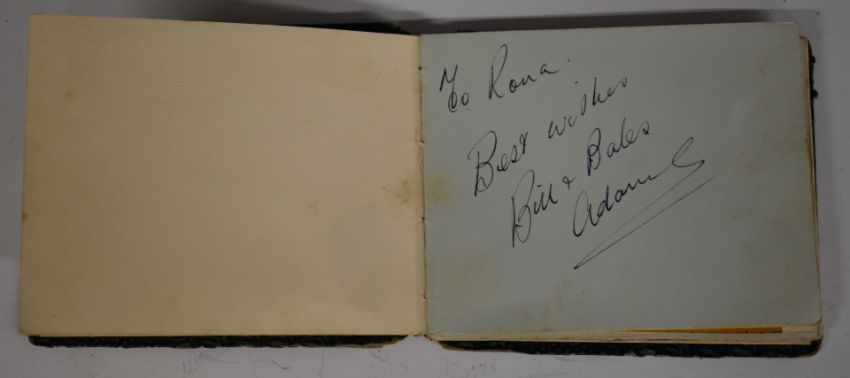 To Rona.
Best wishes
Bill & Bales
Adams